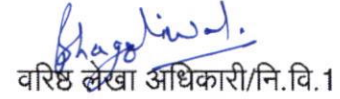 वरिष्ठ लेखा अधिकारी/नि.वि.1